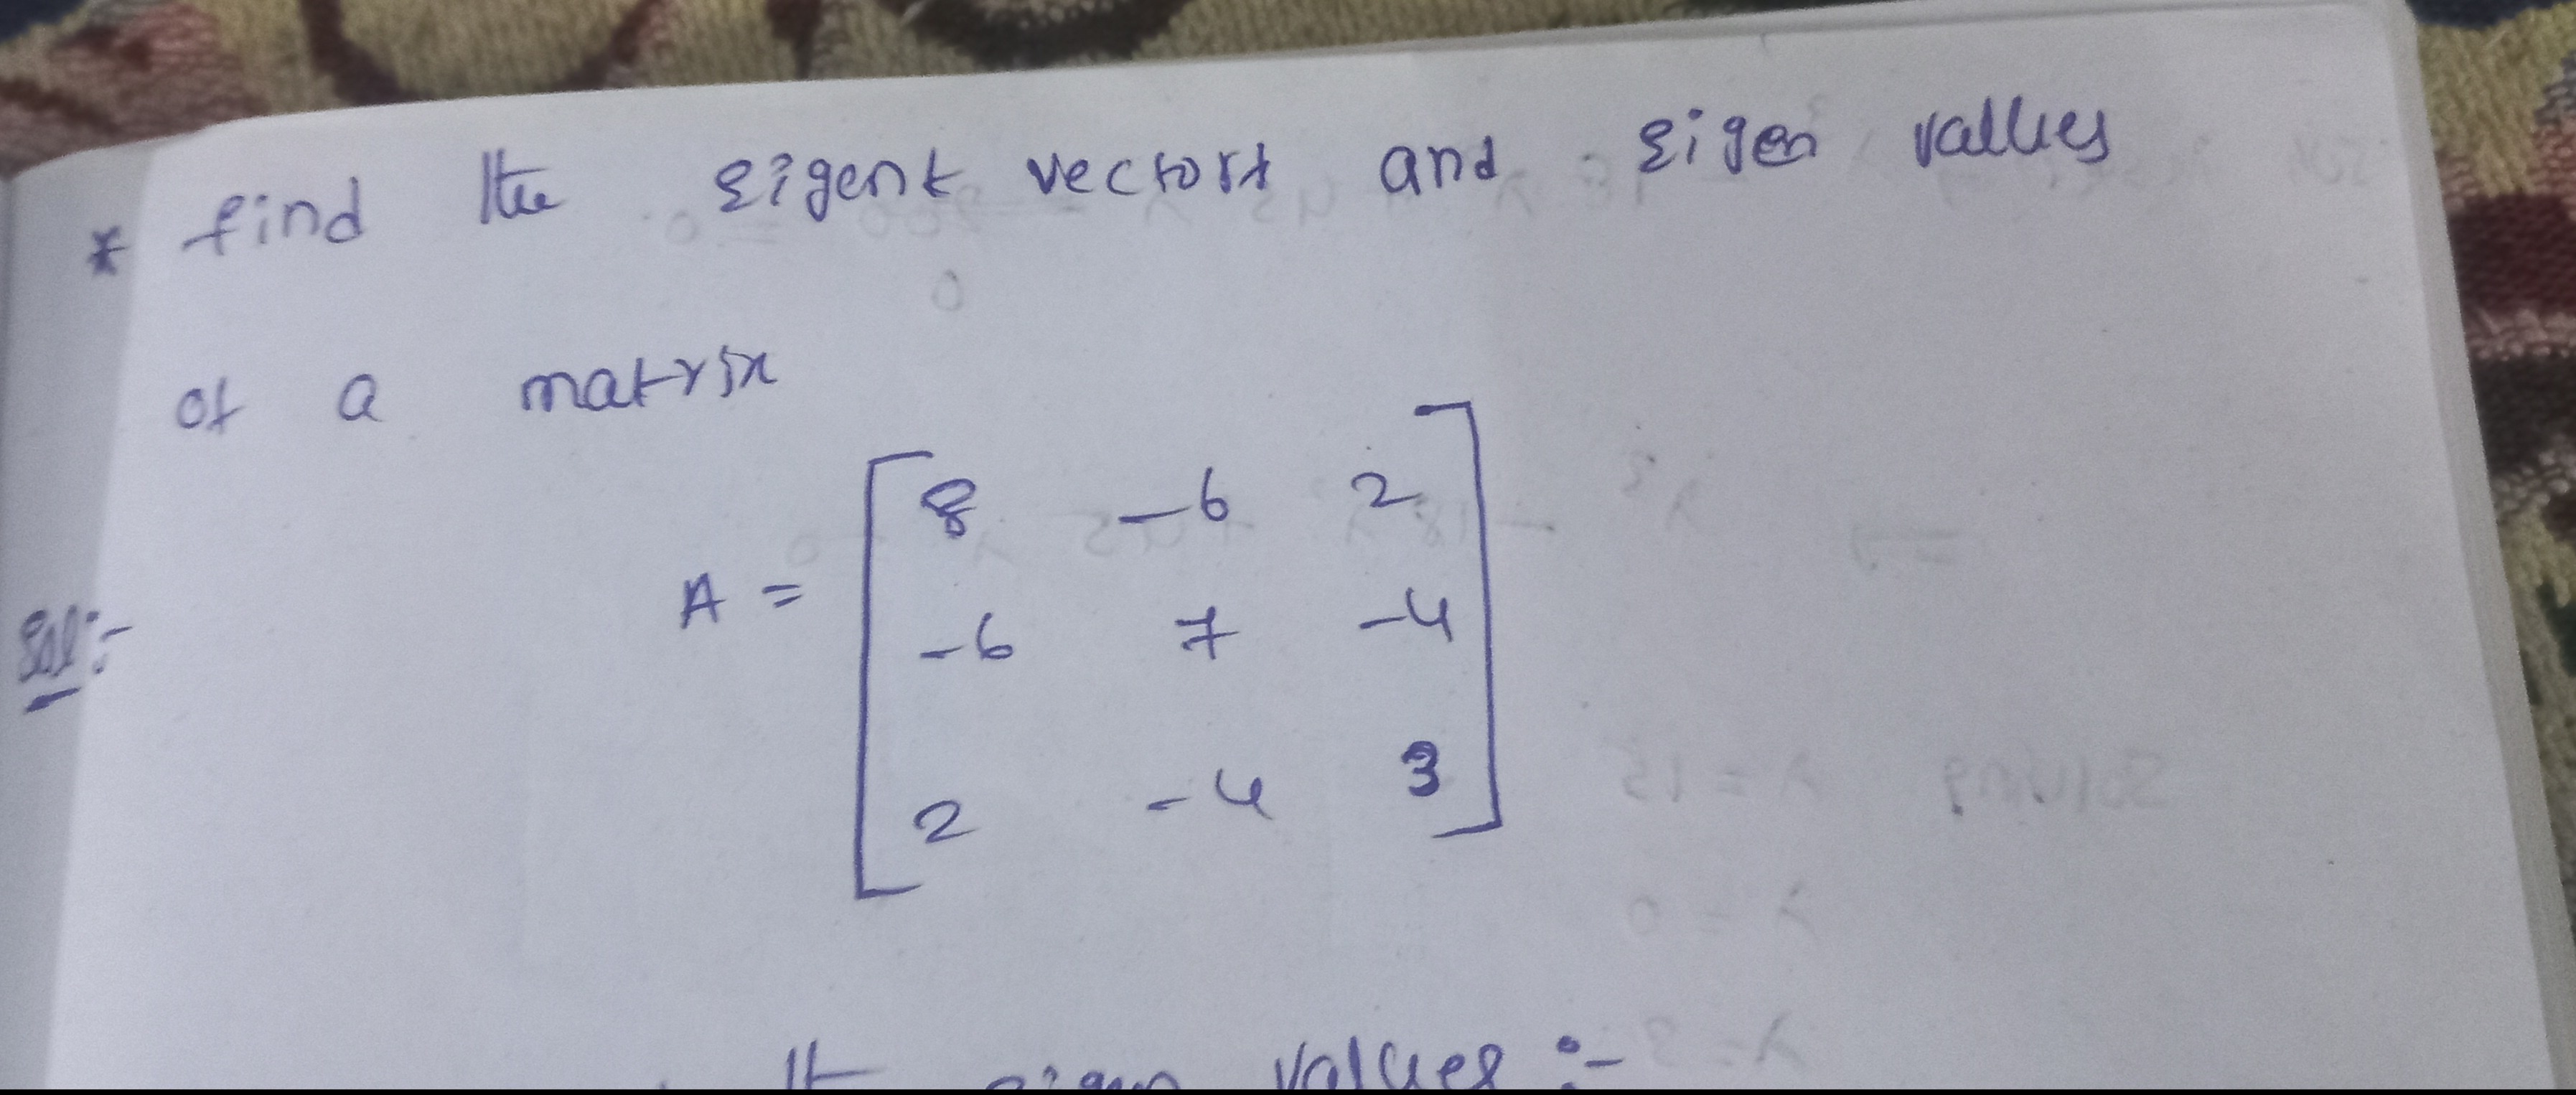 * find the Eigent vectors and Eigen values
of a matrix
A = [ 8 -6 2
-6 7 -4
2 -4 3 ]
Sol:-
values :-